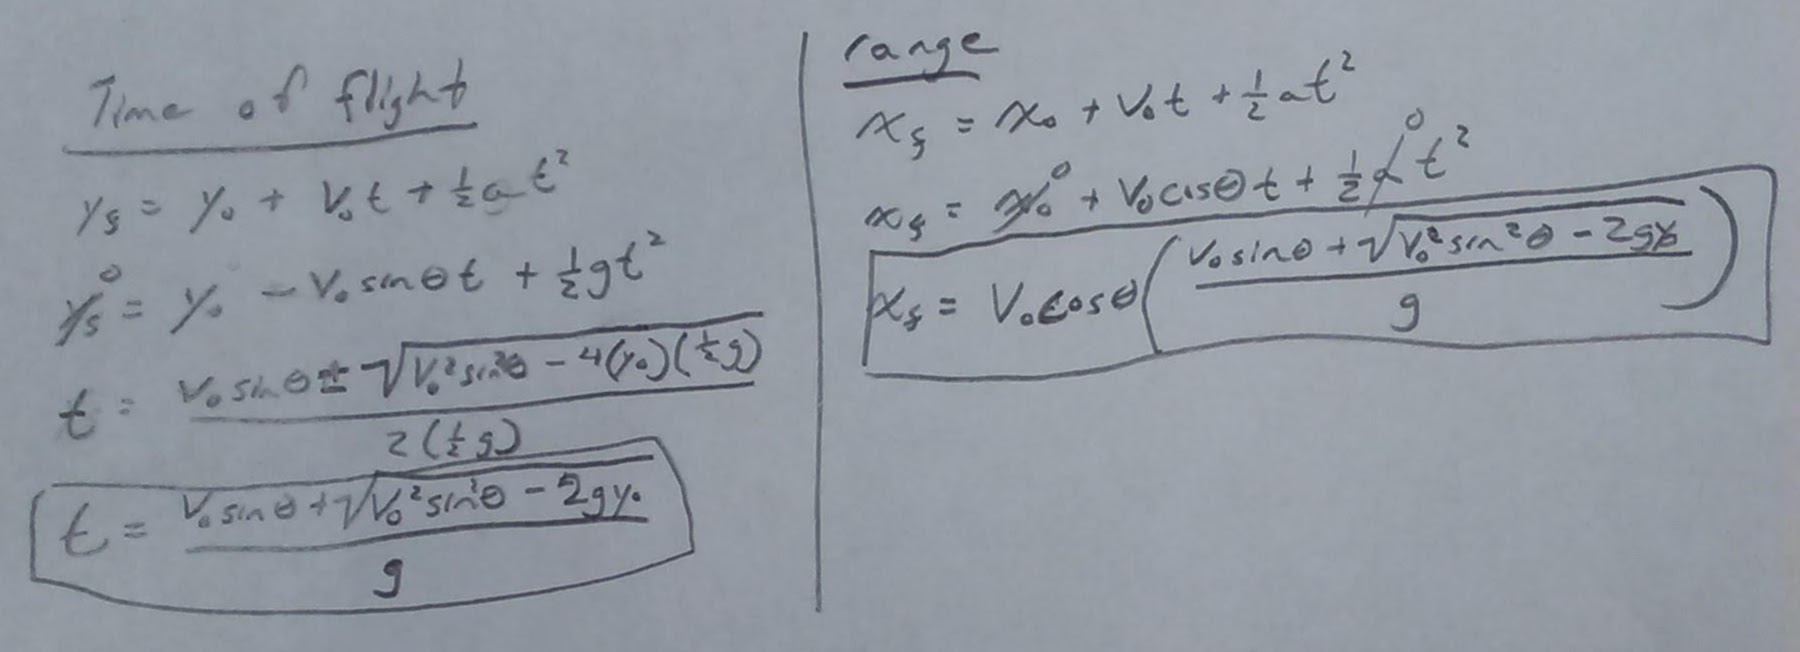 Time of flight
y_f = y_0 + v_0 t + ½ a t²
y_f⁰ = y_0 - v_0 sinθ t + ½ g t²
t = (v_0 sinθ ± √(v_0² sin²θ - 4(y_0)(½ g))) / (2(½ g))
t = (v_0 sinθ + √(v_0² sin²θ - 2gy_0)) / g
range
x_f = x_0 + v_0 t + ½ a t²
x_f = x_0⁰ + v_0 cosθ t + ½ a⁰ t²
x_f = v_0 cosθ ((v_0 sinθ + √(v_0² sin²θ - 2gy_0)) / g)